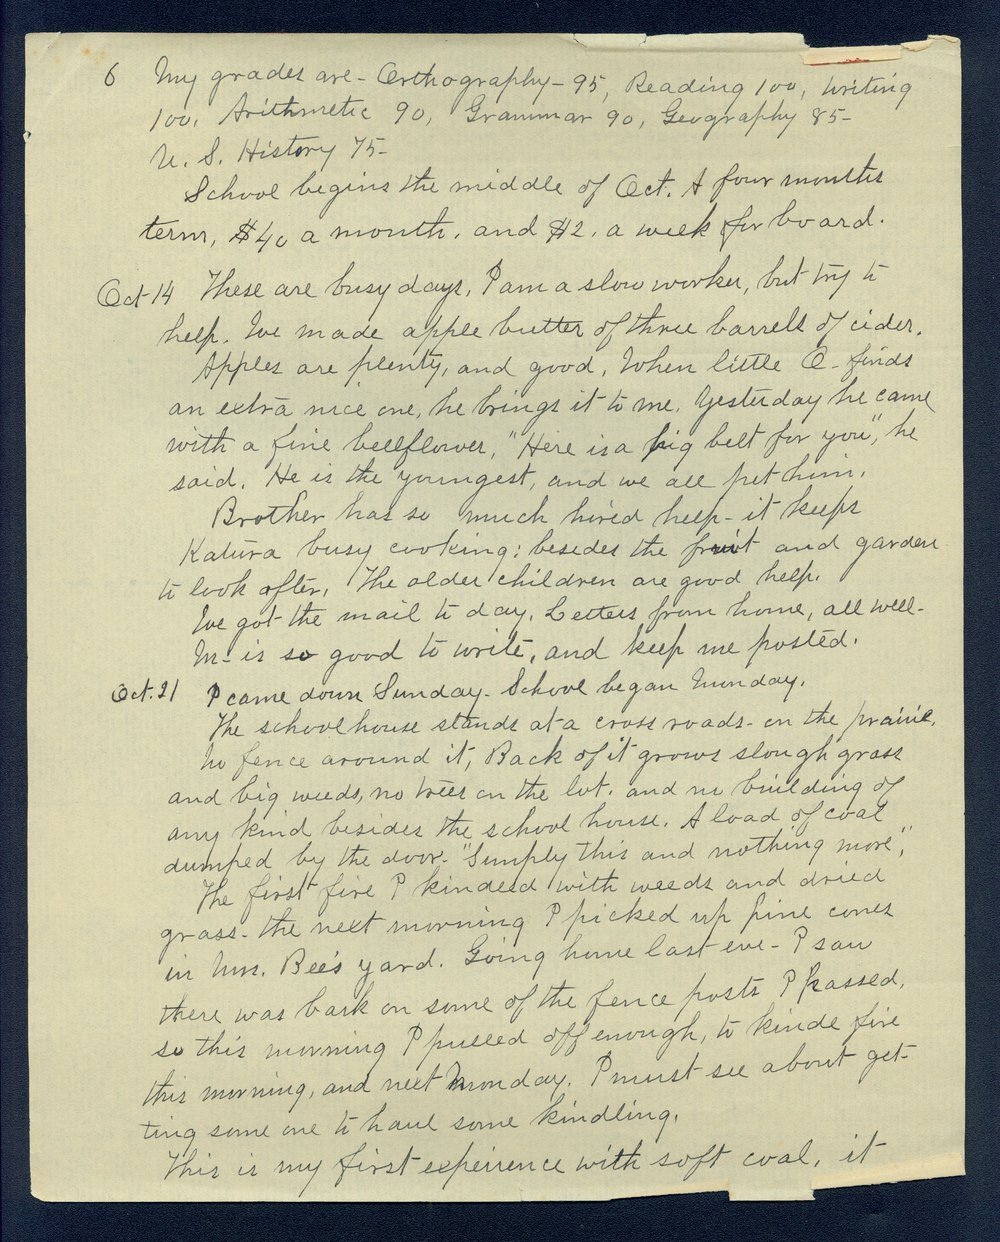 6 My grades are - Orthography - 95, Reading 100, Writing
100, Arithmetic 90, Grammar 90, Geography 85-
U. S. History 75-
School begins the middle of Oct. A four months
term, $40 a month, and $2. a week for board.
Oct 14 These are busy days, I am a slow worker, but try to
help. We made apple butter of three barrells of cider.
Apples are plenty, and good, When little O- finds
an extra nice one, he brings it to me. Yesterday he came
with a fine bellflower, "Here is a big belt for you", he
said. He is the youngest, and we all pet him.
Brother has so much hired help - it keeps
Katura busy cooking; besides the fruit and garden
to look after, The older children are good help.
We got the mail to day. Letters from home, all well-
M- is so good to write, and keep me posted.
Oct. 21 I came down Sunday - School began Monday.
The schoolhouse stands at a cross roads - on the prairie,
no fence around it, Back of it grows slough grass
and big weeds, no trees on the lot. and no building of
any kind besides the school house. A load of coal
dumped by the door - "Simply this and nothing more",
The first fire I kindled with weeds and dried
grass - the next morning I picked up pine cones
in Mrs. Bee's yard. Going home last eve - I saw
there was bark on some of the fence posts I passed,
so this morning I pulled off enough, to kindle fire
this morning, and next Monday. I must see about get-
ting some one to haul some kindling.
This is my first experience with soft coal, it